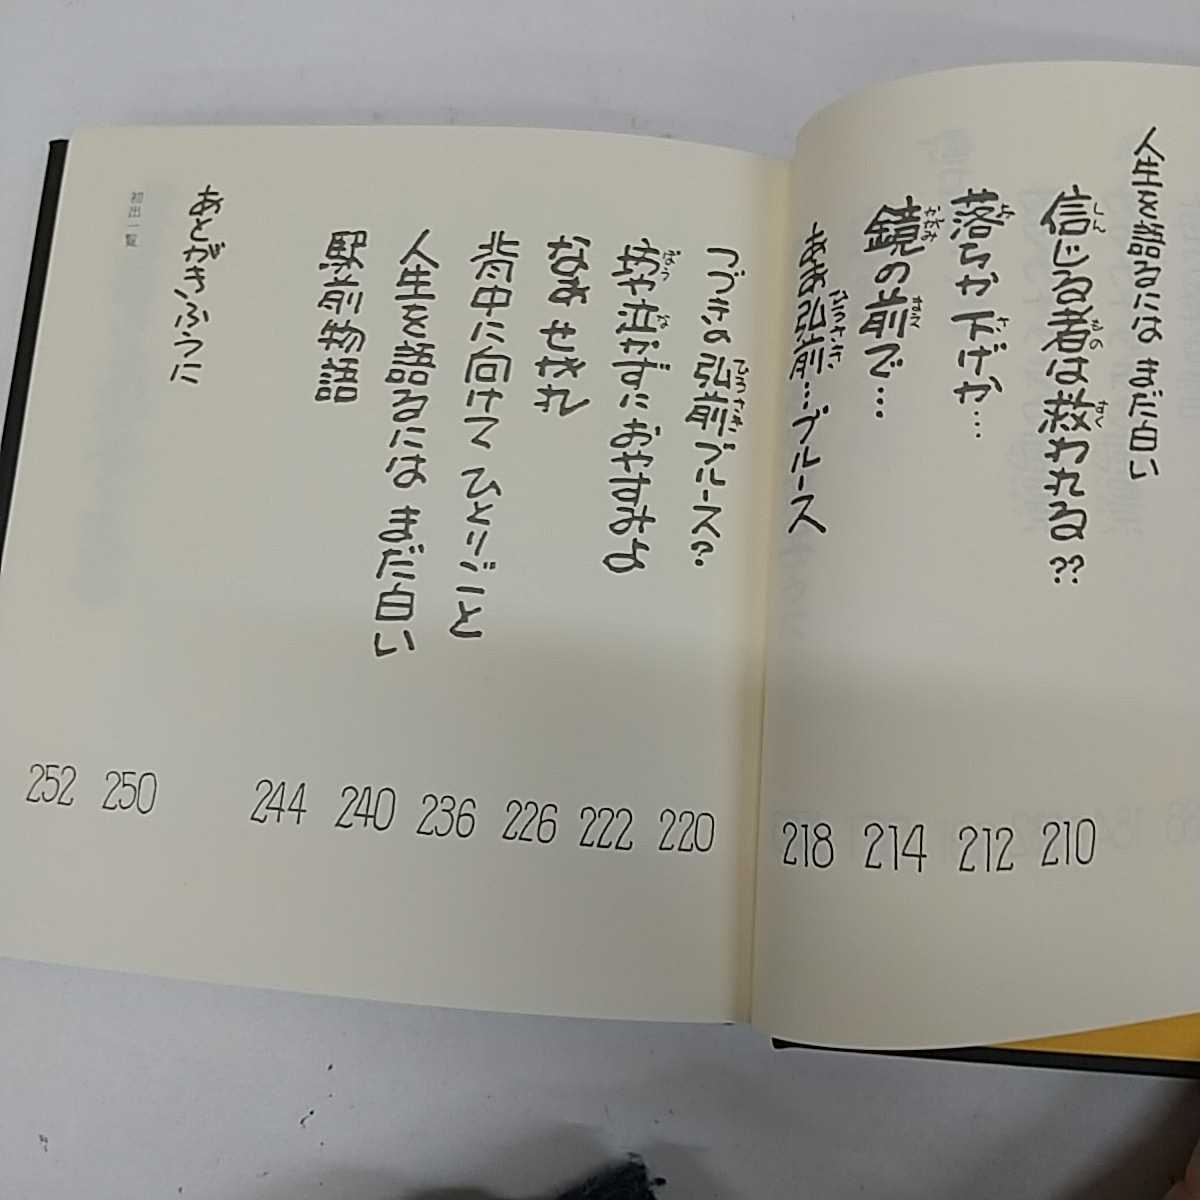 人生を語るには まだ白い
信じる者は救われる?? 210
しん もの すく
落ちか下げか… 212
お さ
鏡の前で… 214
かがみ まえ
ああ弘前…ブルース 218
ひろさき
つづきの弘前ブルース? 220
ひろさき
坊や泣かずにおやすみよ 222
ぼう な
なあせがれ 226
背中に向けてひとりごと 236
人生を語るには まだ白い 240
駅前物語 244
あとがきふうに 250
初出一覧 252